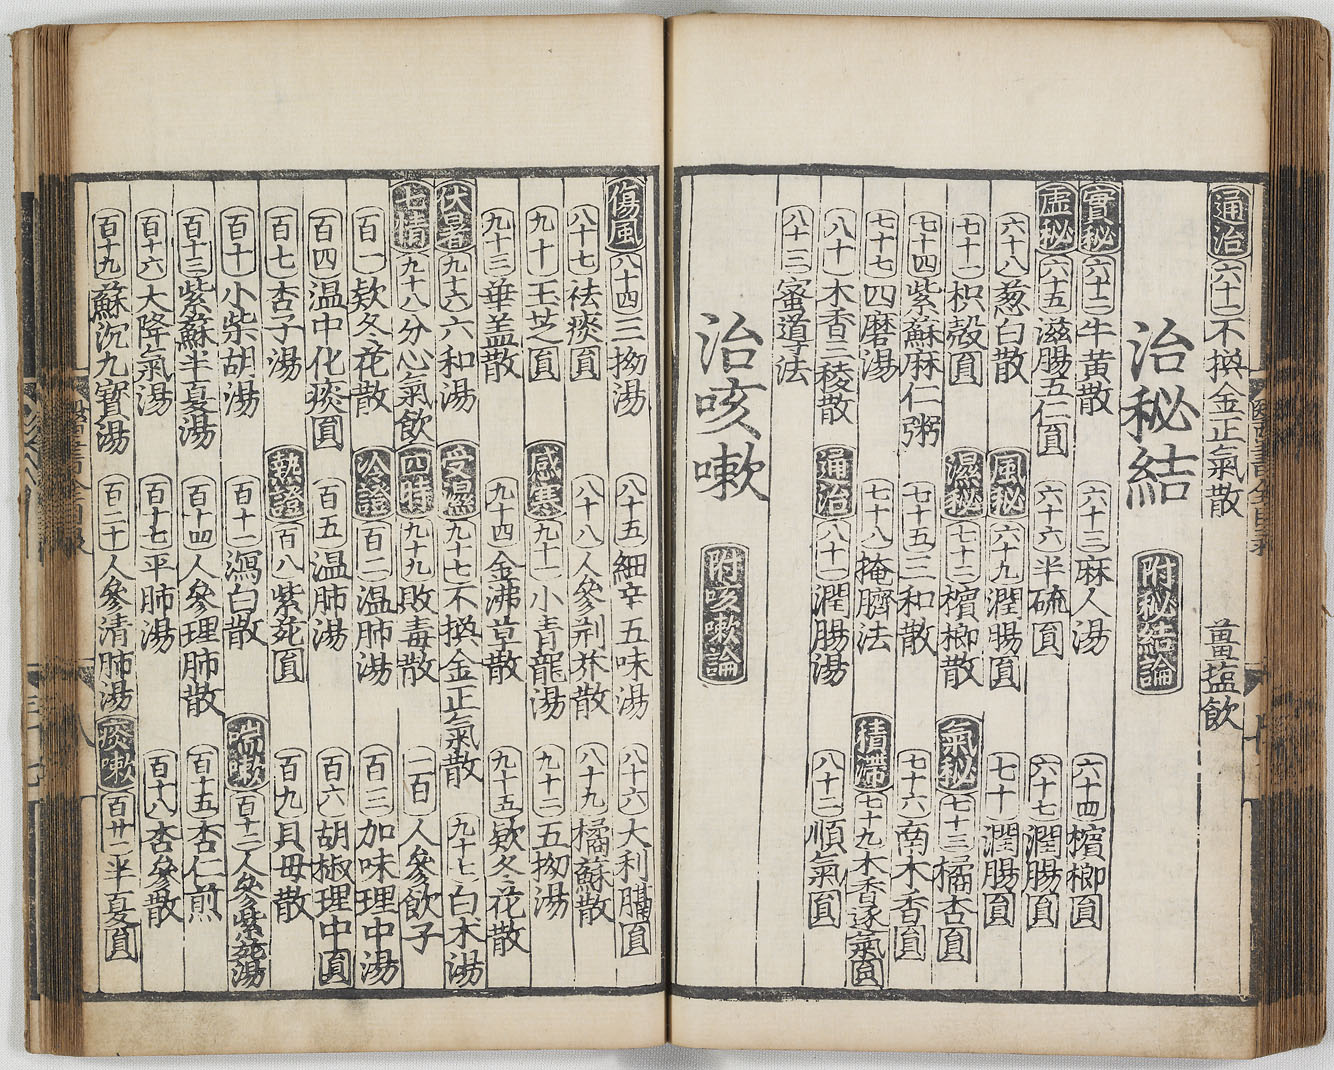 通治 六十一 不換金正氣散 薑塩飲
治秘結 附秘結論
實秘 六十二 牛黃散 六十三 麻人湯 六十四 檳榔圓
虛秘 六十五 滋腸五仁圓 六十六 半硫圓 六十七 潤腸圓
六十八 葱白散 風秘 六十九 潤腸圓 七十 潤腸圓
七十一 枳殼圓 濕秘 七十二 檳榔散 氣秘 七十三 橘杏圓
七十四 紫蘇麻仁粥 七十五 三和散 七十六 南木香圓
七十七 四磨湯 七十八 掩臍法 積滯 七十九 木香逐氣圓
八十 木香三稜散 通治 八十一 潤腸湯 八十二 順氣圓
八十三 蜜道法
治咳嗽 附咳嗽論
傷風 八十四 三拗湯 八十五 細辛五味湯 八十六 大利膈圓
八十七 祛痰圓 八十八 人參荊芥散 八十九 橘蘇散
九十 玉芝圓 感寒 九十一 小青龍湯 九十二 五拗湯
九十三 華盖散 九十四 金沸草散 九十五 欵冬花散
伏暑 九十六 六和湯 受濕 九十七 不換金正氣散 九十七 白朮湯
七情 九十八 分心氣飲 四時 九十九 敗毒散 一百 人參飲子
百一 欵冬花散 冷證 百二 温肺湯 百三 加味理中湯
百四 温中化痰圓 百五 温肺湯 百六 胡椒理中圓
百七 杏子湯 熱證 百八 紫菀圓 百九 貝母散
百十 小柴胡湯 百十一 瀉白散 喘嗽 百十二 人參紫菀湯
百十三 紫蘇半夏湯 百十四 人參理肺散 百十五 杏仁煎
百十六 大降氣湯 百十七 平肺湯 百十八 杏參散
百十九 蘇沉九寶湯 百二十 人參清肺湯 痰嗽 百廿一 半夏圓